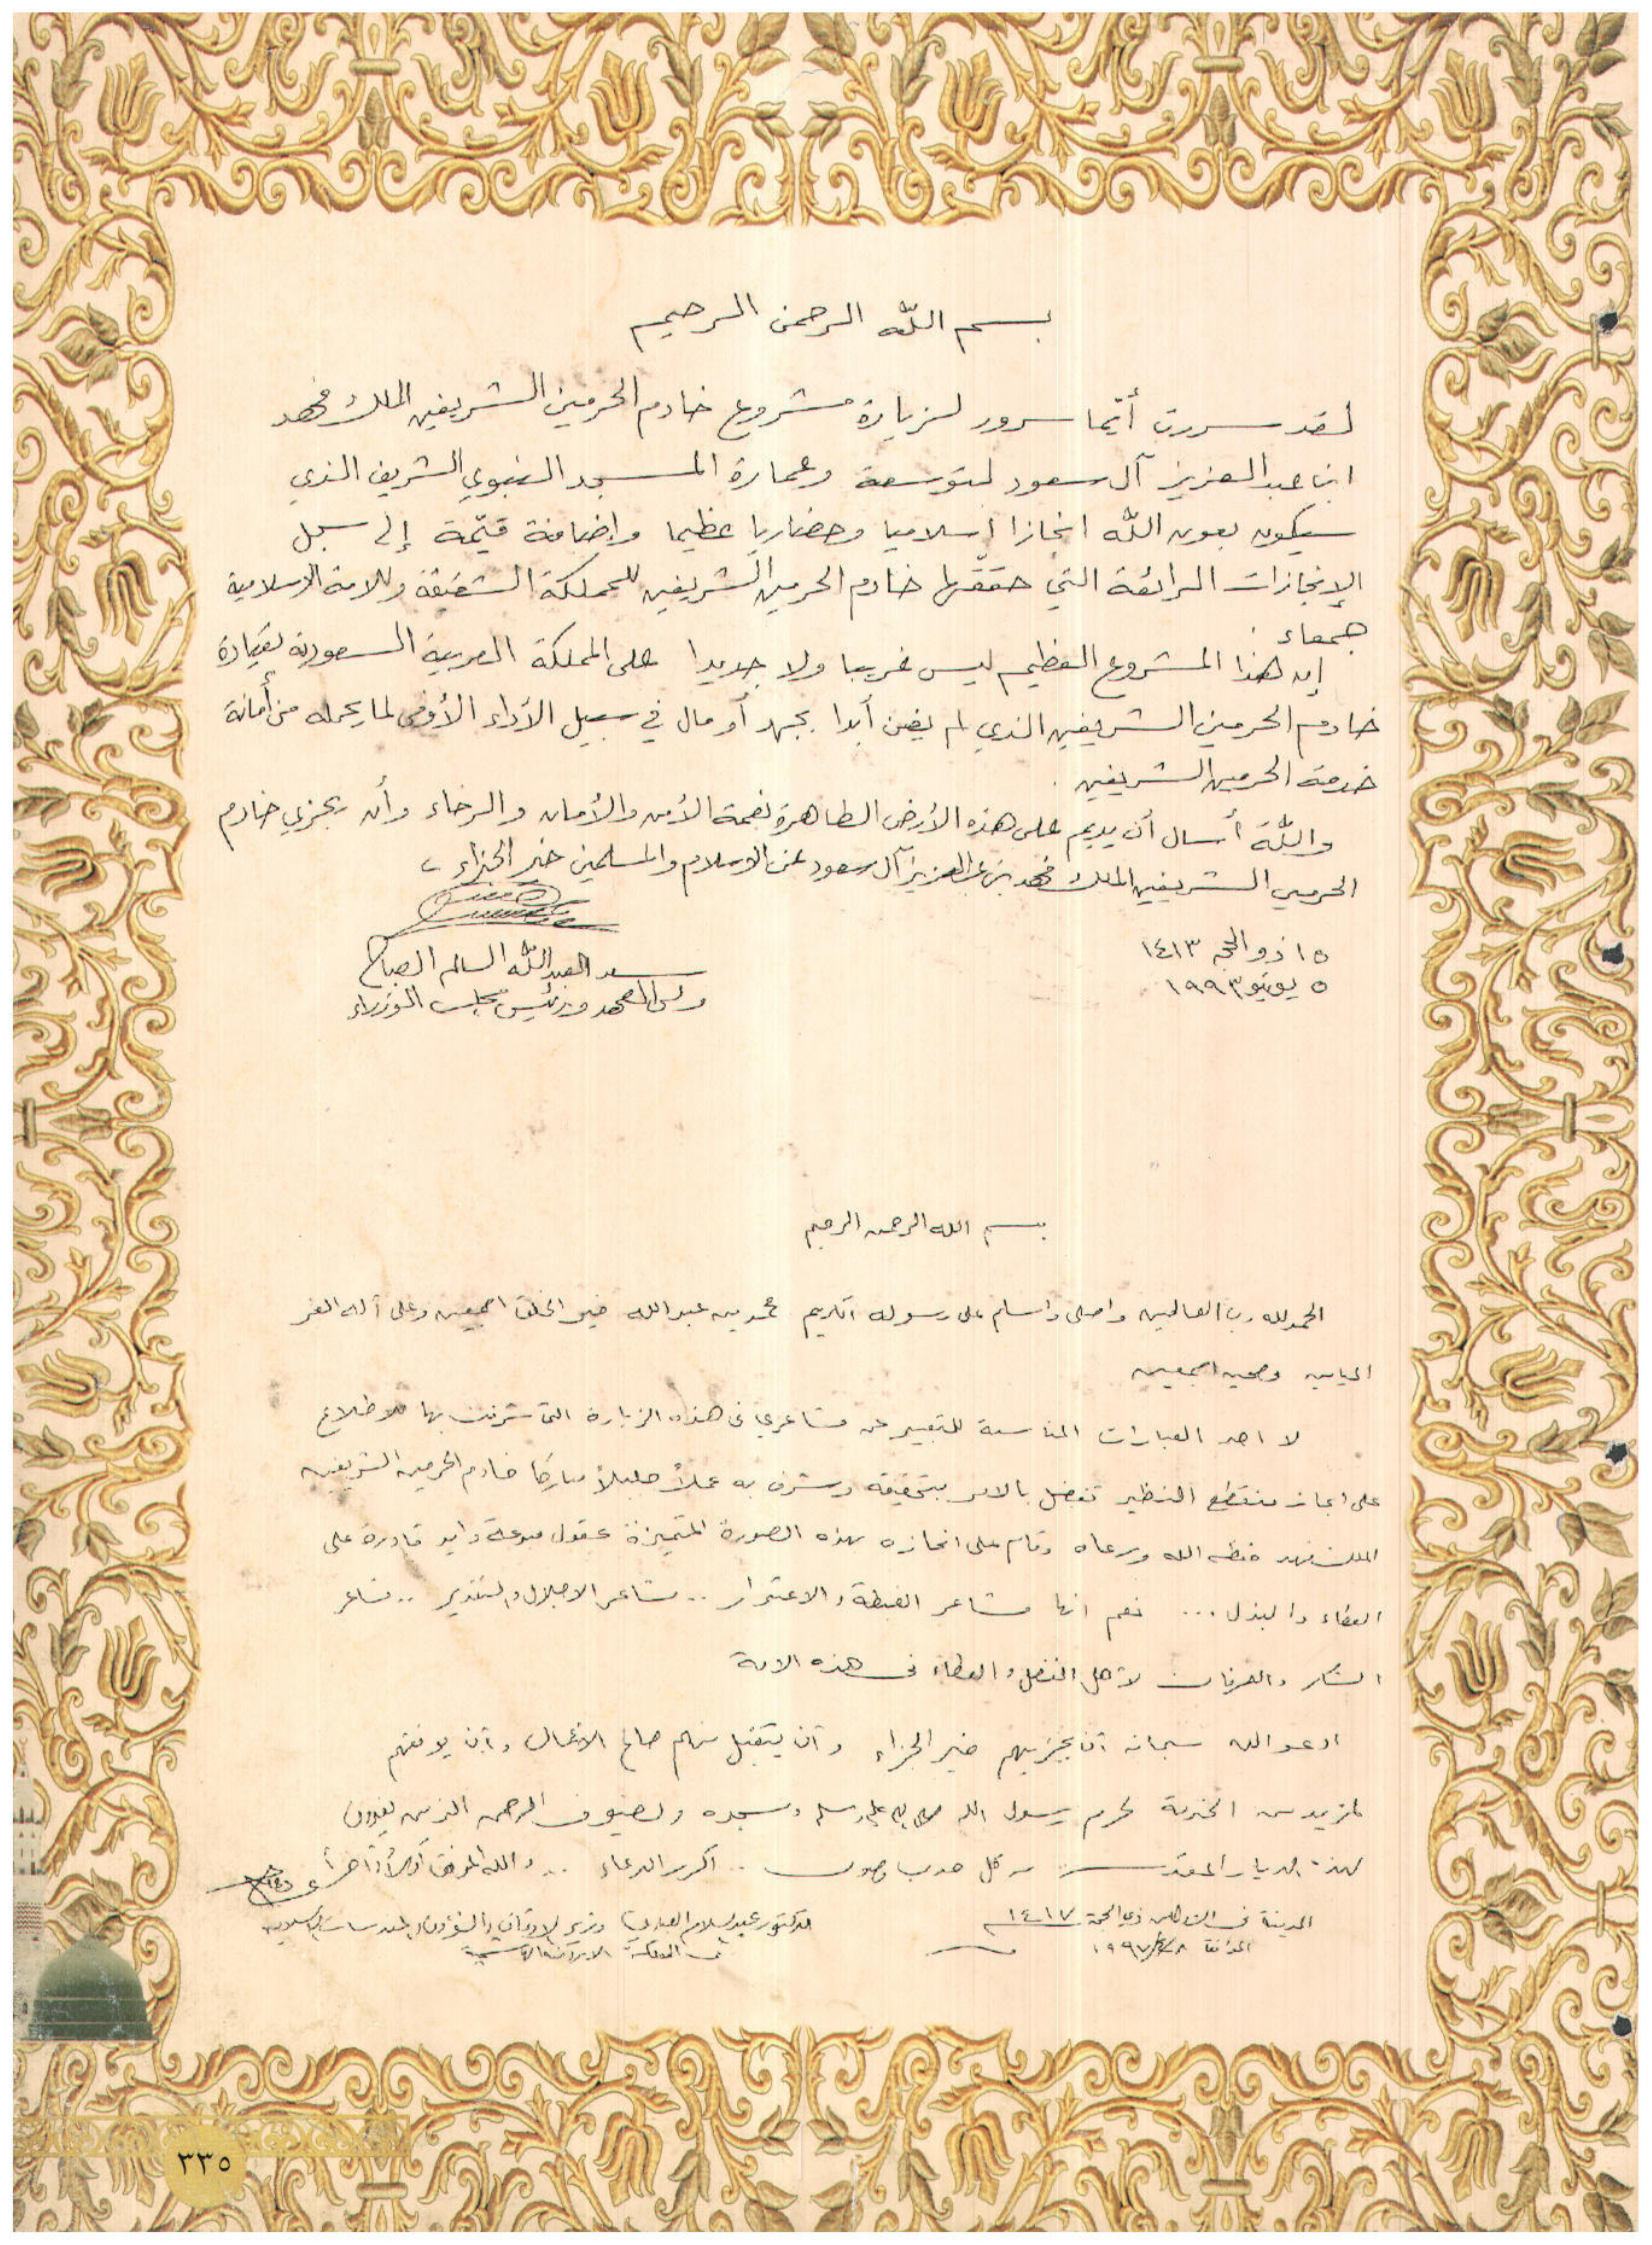 بسم اللّه الرحمن الرحيم
لقد سررت أيّما سرور لزيارة مشروع خادم الحرمين الشريفين الملك فهد
ابن عبد العزيز آل سعود لتوسعة وعمارة المسجد النبوي الشريف الذي
سيكون بعون اللّه انجازا إسلاميا وحضاريا عظيما وإضافة قيّمة إلى سجل
الإنجازات الرائعة التي حققها خادم الحرمين الشريفين للمملكة الشقيقة وللامة الاسلامية
جمعاء .
إن هذا المشروع العظيم ليس غريبا ولا جديدا على المملكة العربية السعودية بقيادة
خادم الحرمين الشريفين الذي لم يضن أبدا بجهد أو مال في سبيل الأداء الأوفى لما يحمله من أمانة
خدمة الحرمين الشريفين .
واللّه أسال أن يديم على هذه الأرض الطاهرة نعمة الأمن والأمان والرخاء وأن يجزي خادم
الحرمين الشريفين الملك فهد بن عبد العزيز آل سعود عن الاسلام والمسلمين خير الجزاء ،
سعد العبد اللّه السالم الصباح
ولي العهد ورئيس مجلس الوزراء
١٥ ذو الحجه ١٤١٣
٥ يونيو ١٩٩٣
بسم الله الرحمن الرحيم
الحمد لله رب العالمين واصلي واسلم على رسوله الكريم محمد بن عبد الله خير الخلق اجمعين وعلى آله الغر
الميامين وصحبه اجمعين
لا اجد العبارات المناسبة للتعبير عن مشاعري في هذه الزيارة التي شرفت بها للاطلاع
على انجاز منقطع النظير تفضل بالامر بتحقيقه وشرف به عملاً جليلاً مباركا خادم الحرمين الشريفين
الملك فهد حفظه الله ورعاه وقام على انجازه بهذه الصورة المتميزة عقول مبدعة وايد قادرة على
العطاء والبذل ... نعم انها مشاعر الغبطة والاعتزاز .. مشاعر الاجلال والتقدير .. مشاعر
الشكر والعرفان لأهل الفضل والعطاء في هذه الامة
ادعو الله سبحانه أن يجزيهم خير الجزاء وأن يتقبل منهم صالح الأعمال وأن يوفقهم
لمزيد من الخدمة لحرم رسول الله صلى الله عليه وسلم ومسجده ولضيوف الرحمن الذين يفدون
لهذه الديار المقدسة من كل حدب وصوب .. اكرر الدعاء .. والله الموفق أولاً وآخراً
الدكتور عبد السلام العبادي وزير الاوقاف والشؤون والمقدسات الاسلامية
في المملكة الاردنية الهاشمية
المدينة في ذي الحجة ١٤١٧
الموافق ١٩٩٧/٤/٨
٣٣٥